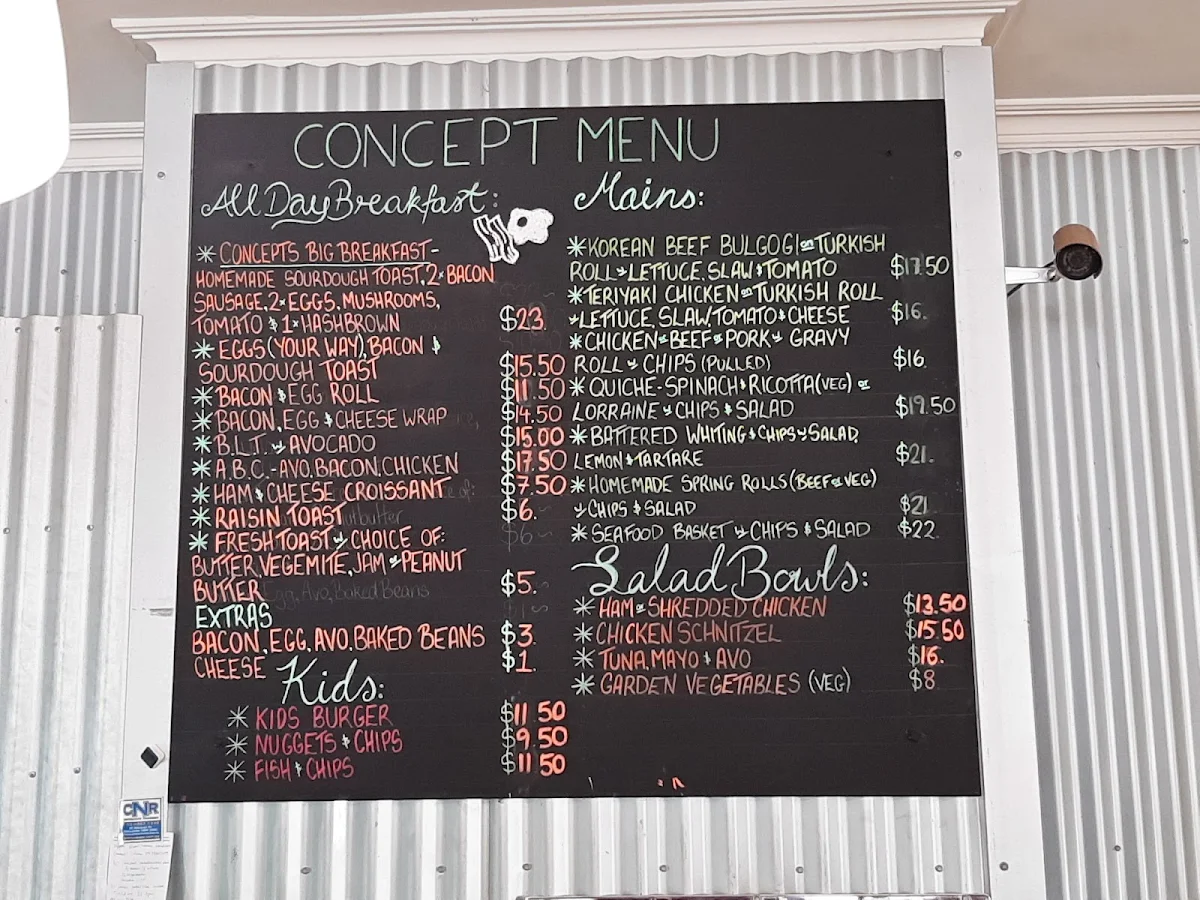 CONCEPT MENU
All Day Breakfast:
* CONCEPTS BIG BREAKFAST-
HOMEMADE SOURDOUGH TOAST, 2x BACON
SAUSAGE, 2x EGGS, MUSHROOMS,
TOMATO & 1x HASHBROWN $23.
* EGGS (YOUR WAY), BACON &
SOURDOUGH TOAST $15.50
* BACON & EGG ROLL $11.50
* BACON, EGG & CHEESE WRAP $14.50
* B.L.T. w AVOCADO $15.00
* A.B.C.-AVO, BACON, CHICKEN $17.50
* HAM & CHEESE CROISSANT $7.50
* RAISIN TOAST $6.
* FRESH TOAST w CHOICE OF:
BUTTER, VEGEMITE, JAM or PEANUT
BUTTER $5.
EXTRAS
BACON, EGG, AVO, BAKED BEANS $3.
CHEESE $1.
Kids:
* KIDS BURGER $11.50
* NUGGETS & CHIPS $9.50
* FISH & CHIPS $11.50
Mains:
* KOREAN BEEF BULGOGI on TURKISH
ROLL w LETTUCE, SLAW & TOMATO $17.50
* TERIYAKI CHICKEN on TURKISH ROLL
w LETTUCE, SLAW, TOMATO & CHEESE $16.
* CHICKEN or BEEF or PORK w GRAVY
ROLL w CHIPS (PULLED) $16.
* QUICHE-SPINACH & RICOTTA (VEG) or
LORRAINE w CHIPS & SALAD $19.50
* BATTERED WHITING & CHIPS w SALAD,
LEMON & TARTARE $21.
* HOMEMADE SPRING ROLLS (BEEF or VEG)
w CHIPS & SALAD $21
* SEAFOOD BASKET w CHIPS & SALAD $22.
Salad Bowls:
* HAM or SHREDDED CHICKEN $13.50
* CHICKEN SCHNITZEL $15.50
* TUNA, MAYO & AVO $16.
* GARDEN VEGETABLES (VEG) $8
CNR